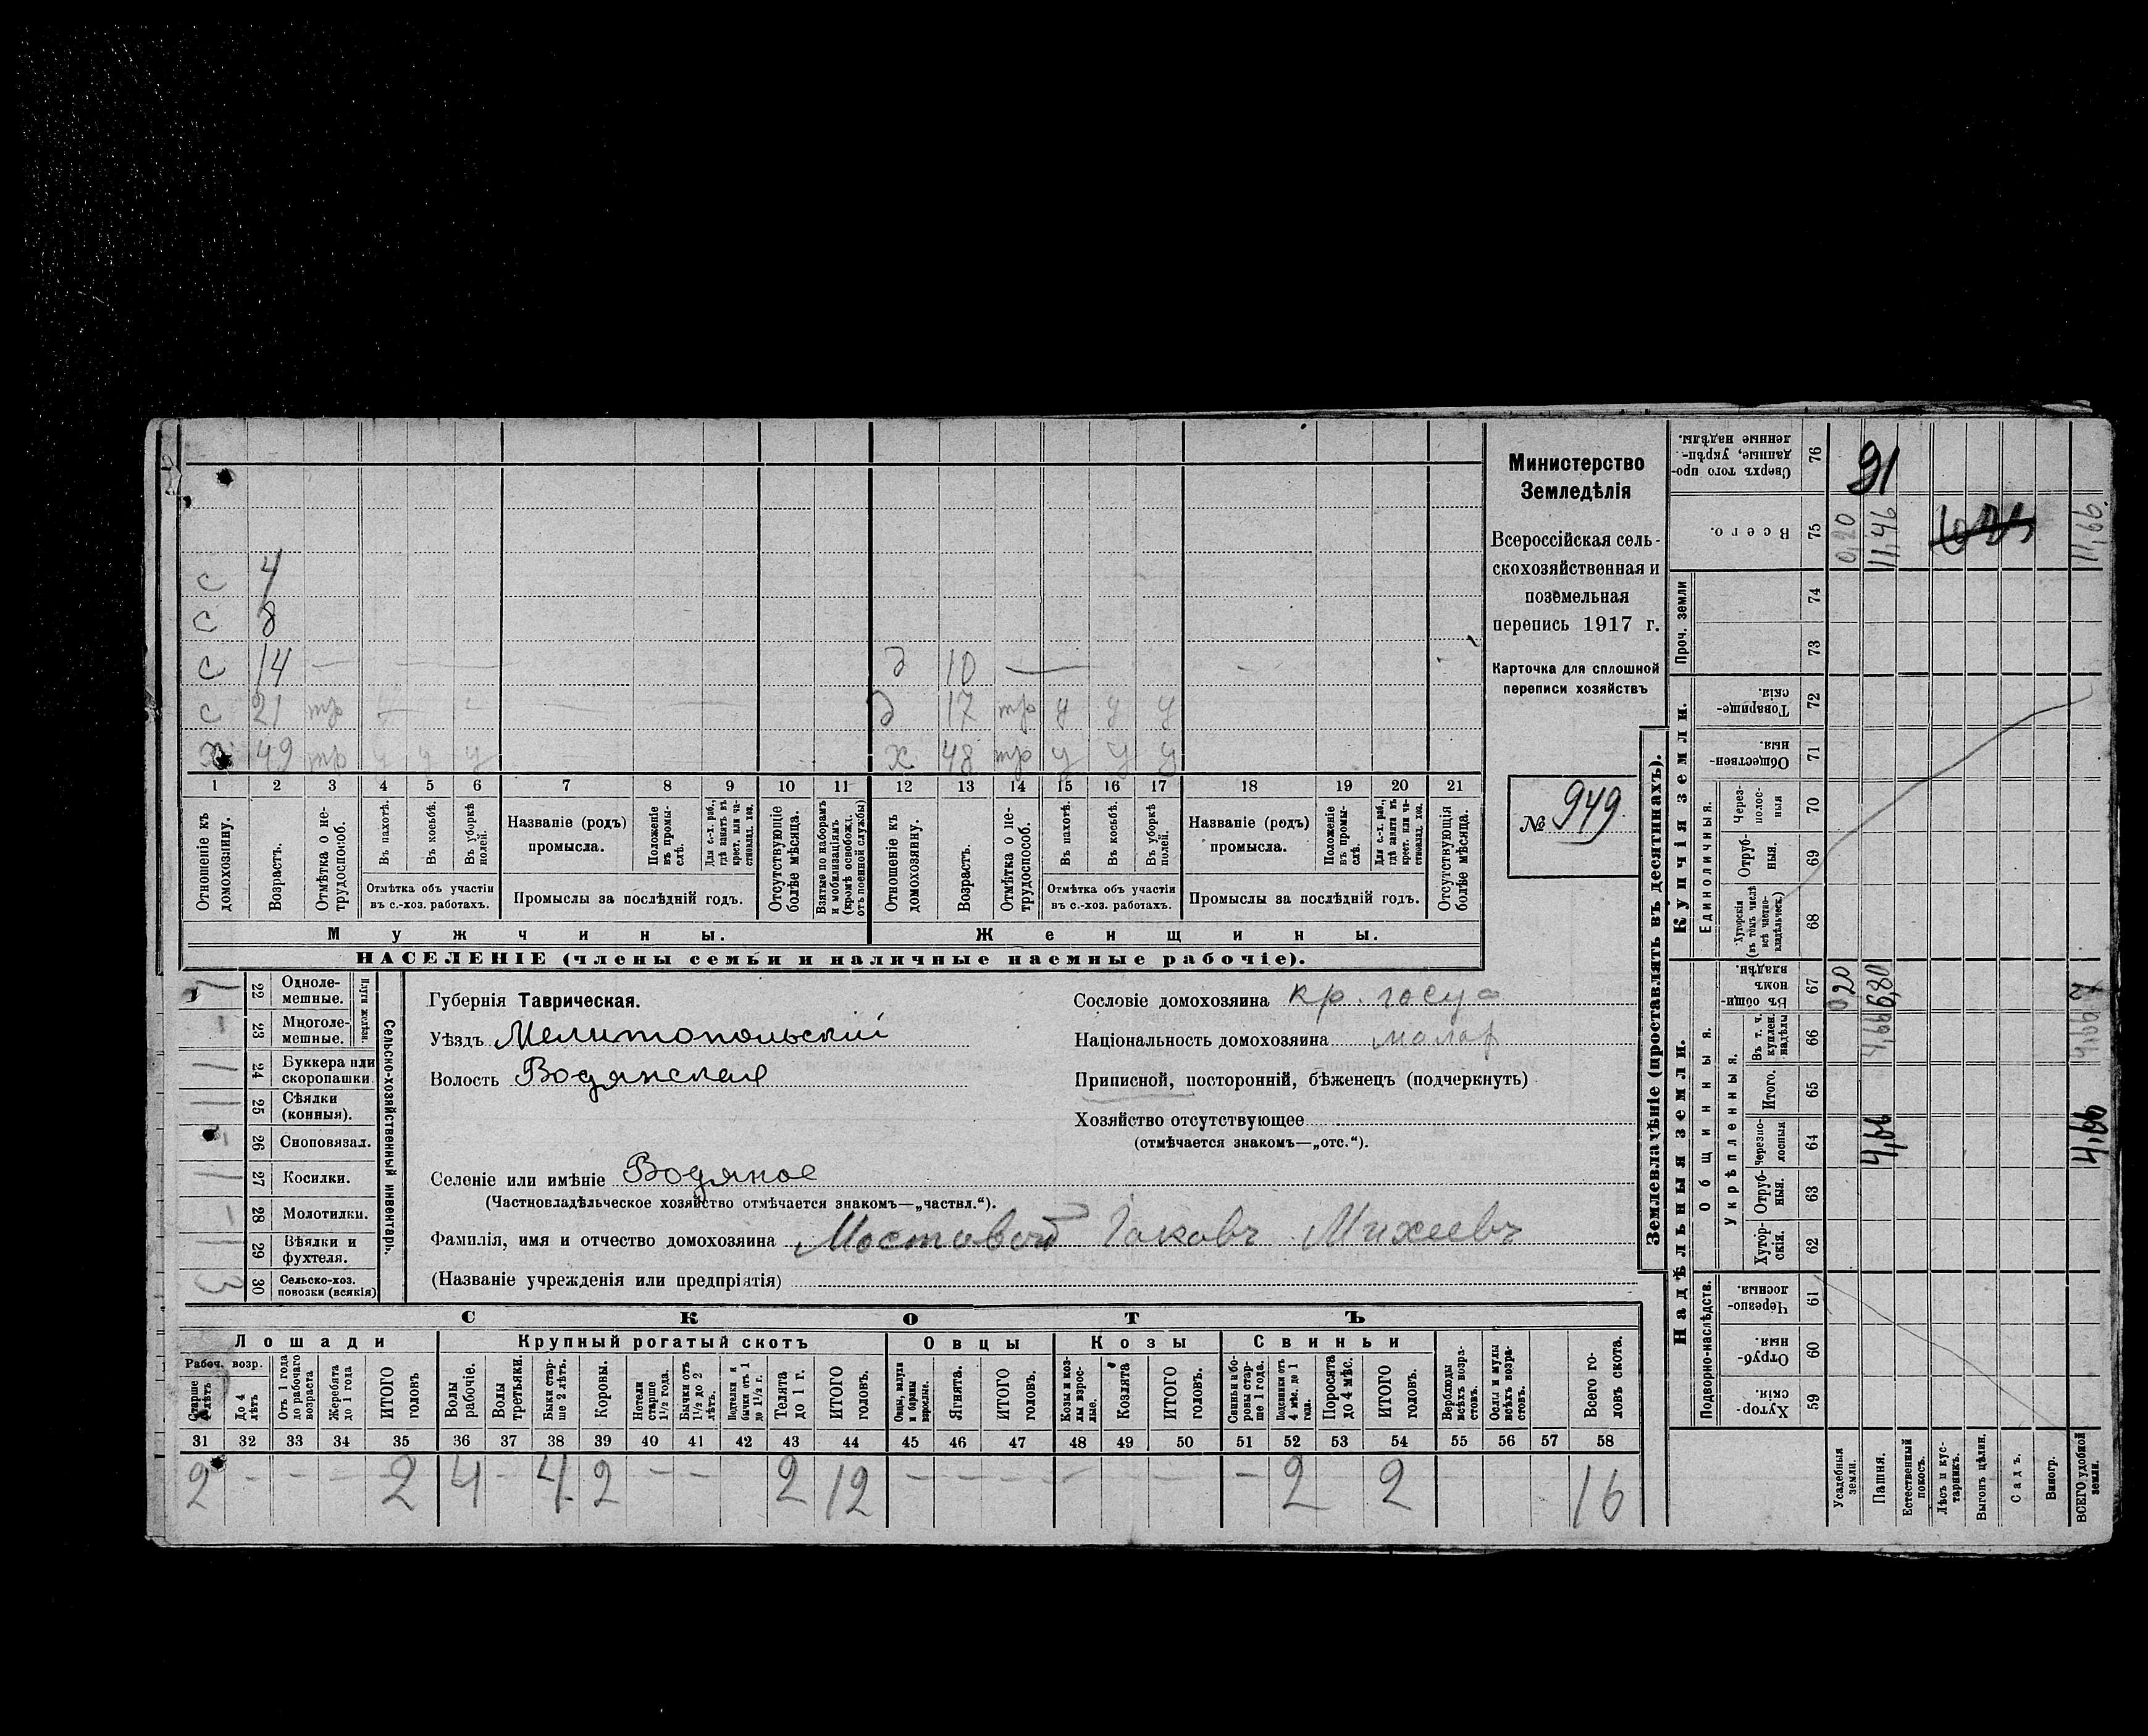 с 4
с 8
с 14 — — д 10 —
с 21 тр — — — — д 17 тр у у у
х 49 тр у у у — х 48 тр у у у
1 2 3 4 5 6 7 8 9 10 11 12 13 14 15 16 17 18 19 20 21
Отношеніе къ домохозяину.
Возрастъ.
Отмѣтка о не-трудоспособ.
Въ пахотѣ.
Въ косьбѣ.
Въ уборкѣ полей.
Отмѣтка объ участіи
въ с.-хоз. работахъ.
Названіе (родъ)
промысла.
Положеніе въ промы-слѣ.
Для с.-х. раб., гдѣ занятъ въ крест. или ча-стновлад. хоз.
Промыслы за послѣдній годъ.
Отсутствующіе болѣе мѣсяца.
Взятые по наборамъ и мобилизаціямъ (кромѣ освобожд. отъ военной службы)
Отношеніе къ домохозяину.
Возрастъ.
Отмѣтка о не-трудоспособ.
Въ пахотѣ.
Въ косьбѣ.
Въ уборкѣ полей.
Отмѣтка объ участіи
въ с.-хоз. работахъ.
Названіе (родъ)
промысла.
Положеніе въ промы-слѣ.
Для с.-х. раб., гдѣ занята въ крест. или ча-стновлад. хоз.
Промыслы за послѣдній годъ.
Отсутствующія болѣе мѣсяца.
Мужчины. Женщины.
НАСЕЛЕНІЕ (члены семьи и наличные наемные рабочіе).
Министерство
Земледѣлія
Всероссійская сель-
скохозяйственная и
поземельная
перепись 1917 г.
Карточка для сплошной
переписи хозяйствъ
№ 949.
1 22 Одноле-мешные.
- 23 Многоле-мешные.
Плуги желѣзн.
1 24 Буккера или скоропашки
1 25 Сѣялки (конныя).
- 26 Сноповязал.
1 27 Косилки.
- 28 Молотилки.
1 29 Вѣялки и фухтеля.
3 30 Сельско-хоз. повозки (всякія)
Сельско-хозяйственный инвентарь.
Губернія Таврическая.
Уѣздъ Мелитопольскій
Волость Водянская
Селеніе или имѣніе Водяное
(Частновладѣльческое хозяйство отмѣчается знакомъ—„частвл.“).
Фамилія, имя и отчество домохозяина Мостовой Іаковъ Михеевъ
(Названіе учрежденія или предпріятія)
Сословіе домохозяина кр. госуд
Національность домохозяина малор
Приписной, посторонній, бѣженецъ (подчеркнуть)
Хозяйство отсутствующее
(отмѣчается знакомъ—„отс.“).
СКОТЪ
Лошади Крупный рогатый скотъ Овцы Козы Свиньи
Рабоч. возр.
Старше 4 лѣтъ
До 4 лѣтъ
Отъ 1 года до рабочаго возраста
Жеребята до 1 года
ИТОГО головъ
Волы рабочіе.
Волы третьяки.
Быки стар-ше 2 лѣтъ.
Коровы.
Нетели старше 1½ года.
Бычки отъ 1½ до 2 лѣтъ.
Подтелки и бычки отъ 1 до 1½ г.
Телята до 1 г.
ИТОГО головъ.
Овцы, валухи и бараны взрослые.
Ягнята.
ИТОГО головъ.
Козы и коз-лы взрос-лые.
Козлята
ИТОГО головъ.
Свиньи и бо-ровы стар-ше 1 года.
Подсвинки отъ 4 мѣс. до 1 года.
Поросята до 4 мѣс.
ИТОГО головъ.
Верблюды всѣхъ возра-стовъ.
Ослы и мулы всѣхъ возра-стовъ.
Всего го-ловъ скота.
31 32 33 34 35 36 37 38 39 40 41 42 43 44 45 46 47 48 49 50 51 52 53 54 55 56 57 58
2 - - - 2 4 - 4 2 - - 2 12 - - - - - - 2 2 16
Землевладѣніе (проставлять въ десятинахъ).
Сверхъ того про-данные, укрѣп-ленные надѣлы. 76 91
Всего. 75 0,20 11,46 11,66.
Проч. земли
74
73
Купчія земли.
Товарище-скія. 72
Обществен-ныя. 71
Единоличныя.
Через-полос-ныя 70
Отруб-ныя. 69
Хуторскія (въ томъ числѣ всѣ частно-владѣльческ.) 68
Надѣльныя земли.
Общинныя.
Въ общи-номъ владѣн. 67 0,20 6,80 7
Укрѣпленныя.
Въ т. ч. куплен. надѣлы 66 4,66 4,66
Итого. 65
Черезпо-лосныя 64 4,66 4,66
Отруб-ныя. 63
Хутор-скія. 62
Подворно-наслѣдств.
Черезпо-лосныя. 61
Отруб-ныя 60
Хутор-скія. 59
Усадебныя земли.
Пашня.
Естественный покосъ.
Лѣсъ и кус-тарникъ.
Выгонъ цѣлин.
Садъ.
Виногр.
ВСЕГО удобной земли.